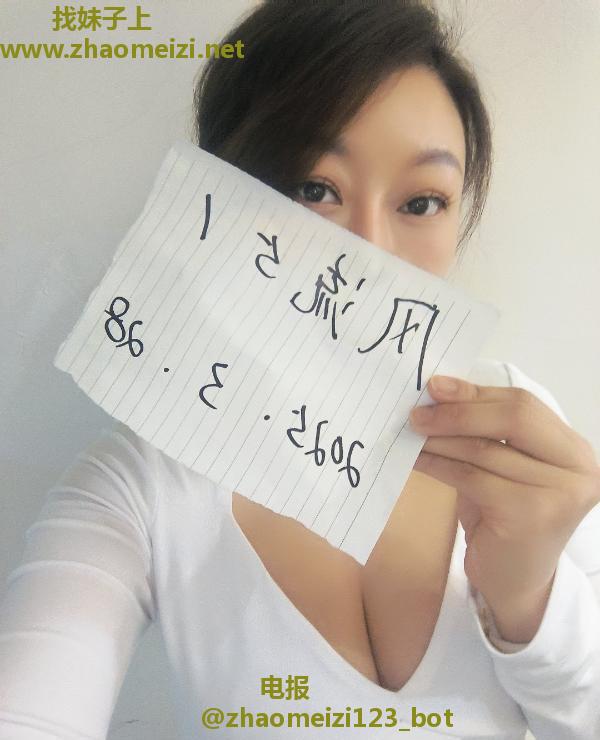 找妹子上
www.zhaomeizi.net
风流51
2025.3.28
电报
@zhaomeizi123_bot